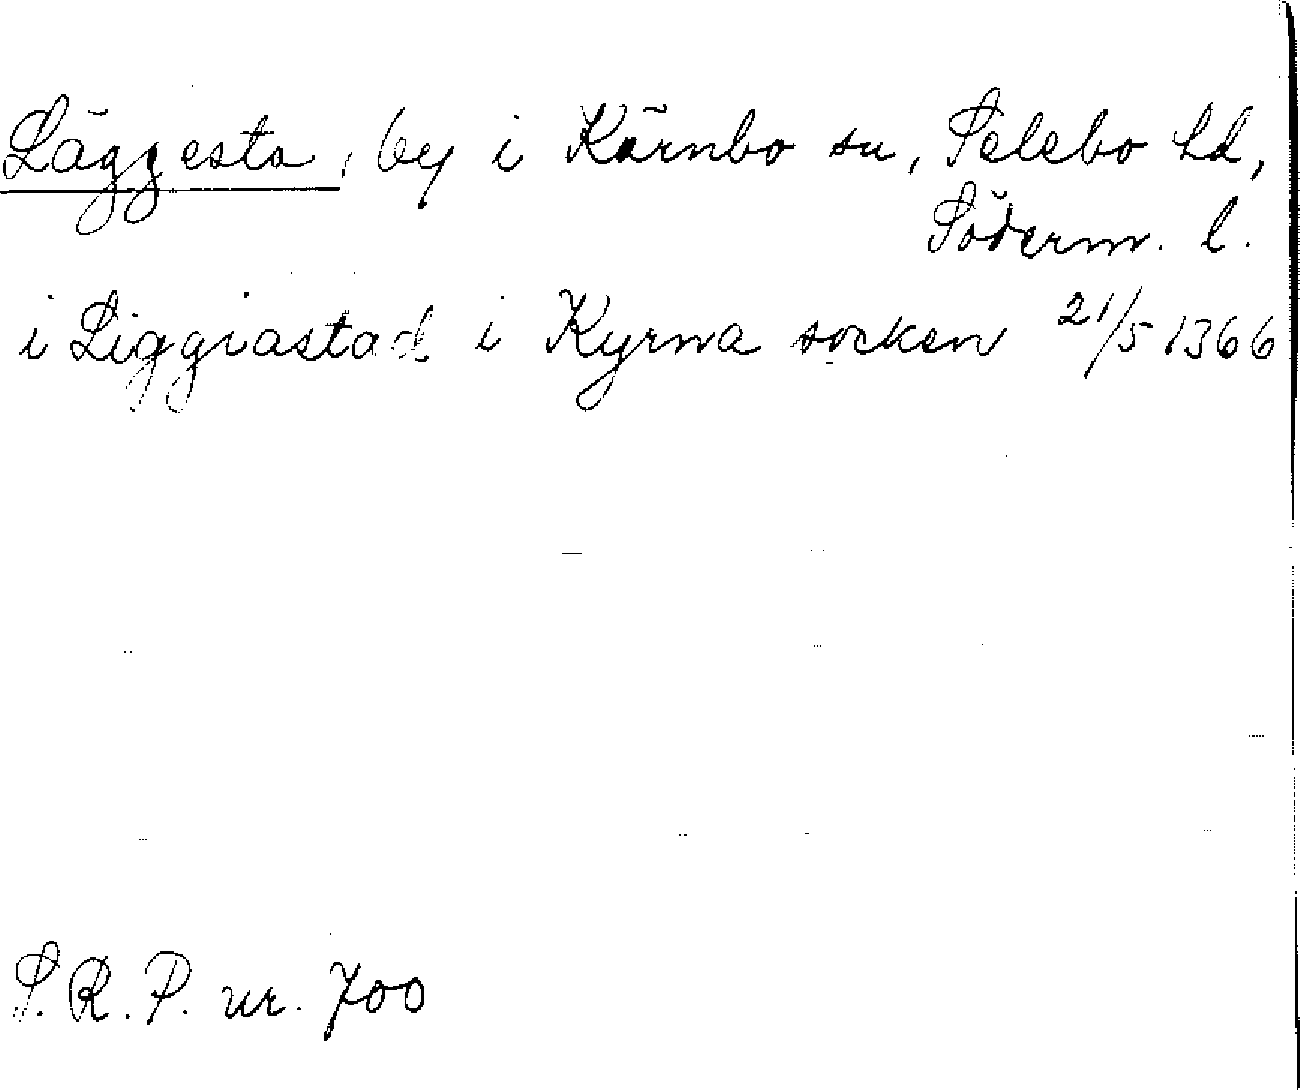 Läggesta, by i Kärnbo sn, Selebo hd,
Söderm. l.
i Liggiastad i Kyrna socken 21/5 1366
S.R.P. nr. 700